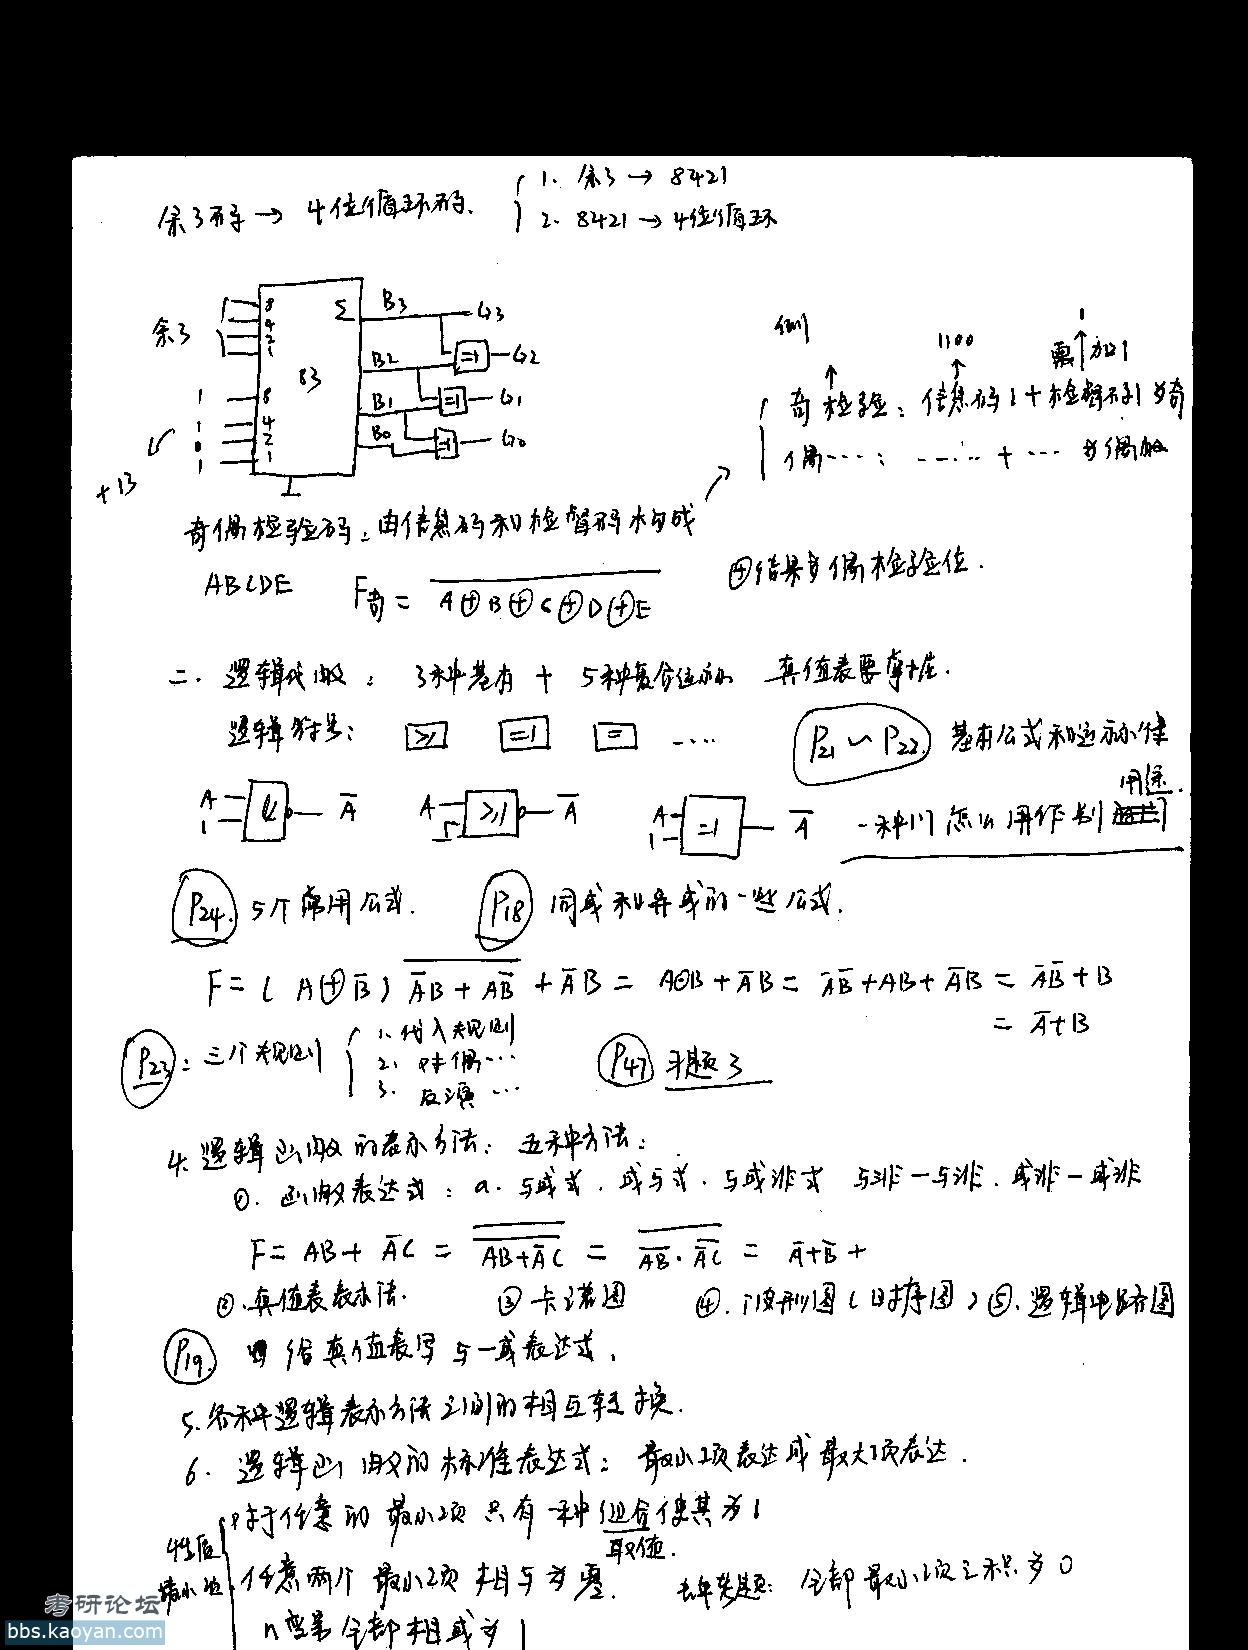 余3码 → 4位循环码. { 1. 余3 → 8421
2. 8421 → 4位循环
余3 8 4 2 1 Σ B3 G3
83 B2 =1 G2
1 8 B1 =1 G1
1 4 B0 =1 G0
0 2
1 1
+13
例 1100 1
需 加1
奇检验: 信息码1+检督码1为奇
偶…: …… + … 为偶数
奇偶检验码: 由信息码和检督码构成
ABCDE F奇 = \overline{A⊕B⊕C⊕D⊕E} ⊕结果为偶检验位.
二. 逻辑代数: 3种基本 + 5种复合运算的 真值表要掌握.
逻辑符号: ≥1 =1 = …. P21 ~ P22. 基本公式和运算定律
用途.
A 1 & Ā A ≥1 Ā A 1 =1 Ā 一种门怎么用作别
P24. 5个常用公式. P18 同或和异或的一些公式.
F = (A⊕B̄) \overline{ĀB + AB̄} + ĀB = A⊙B + ĀB = ĀB̄ + AB + ĀB = ĀB̄ + B
= Ā+B
P23: 三个规则 { 1. 代入规则
2. 对偶…
3. 反演…
P47 习题3
4. 逻辑函数的表示方法: 五种方法:
①. 函数表达式: a. 与或式. 或与式. 与或非式 与非-与非. 或非-或非
F = AB + ĀC = \overline{\overline{AB+ĀC}} = \overline{\overline{AB}·\overline{ĀC}} = Ā+B̄ +
②. 真值表表示法. ③ 卡诺图 ④. 波形图 (时序图) ⑤. 逻辑电路图
P19. 给真值表写与-或表达式.
5. 各种逻辑表示方法之间的相互转换.
6. 逻辑函数的标准表达式: 最小项表达或最大项表达.
性质 最小项 { 对于任意的最小项 只有一种组合使其为1
取值.
任意两个最小项相与为零. 去年类题: 全部最小项之积为0
n变量全部相或为1
考研论坛
bbs.kaoyan.com